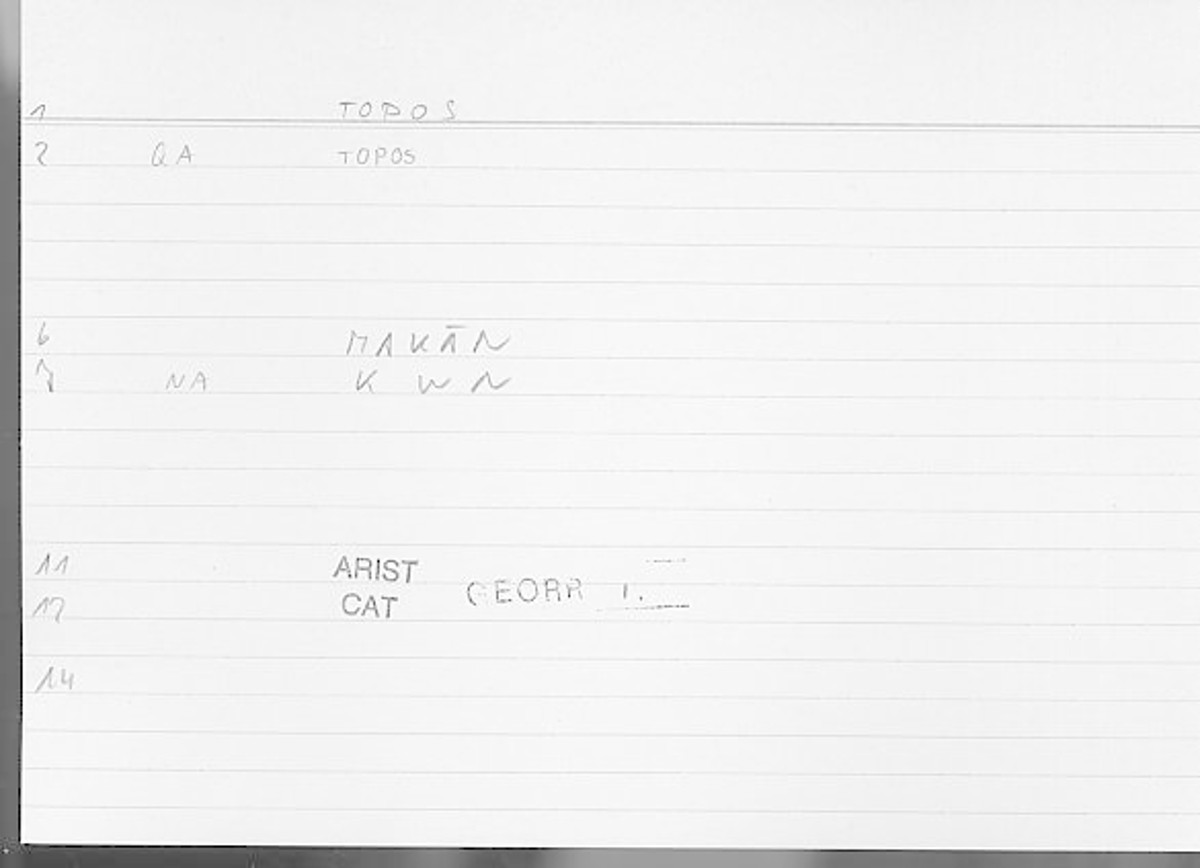 1 TOPOS
2 QA TOPOS
6 MAKĀN
7 NA K W N
11 ARIST
GEORR 1.
12 CAT
14